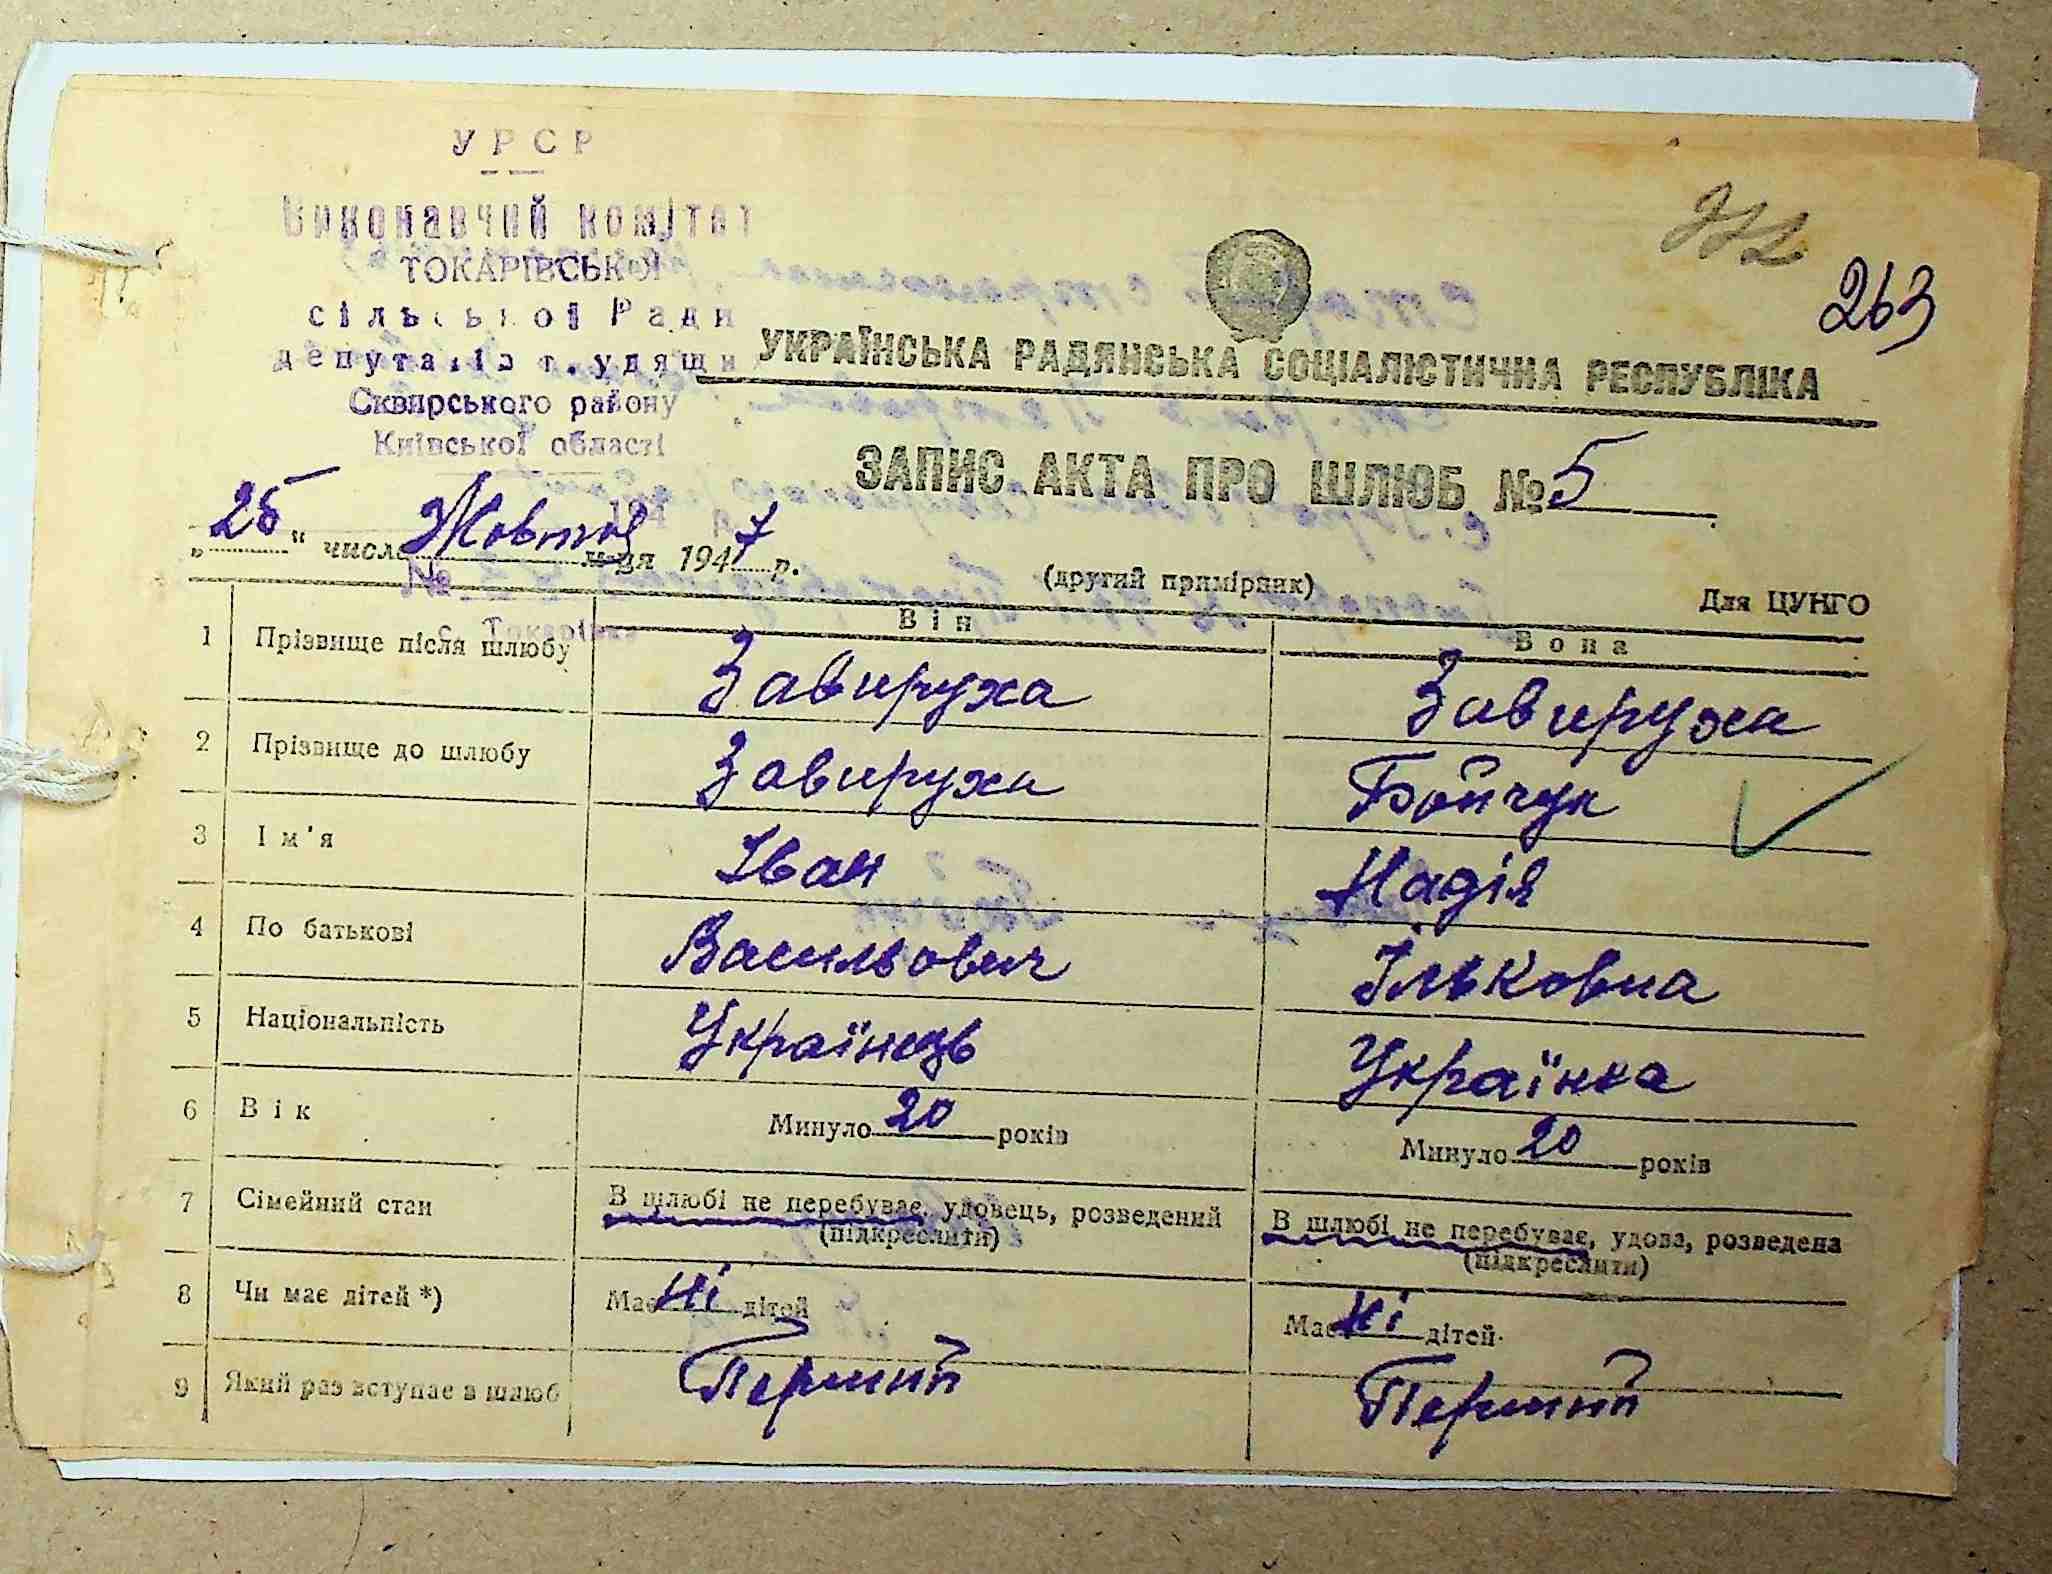 УРСР
Виконавчий комітет
ТОКАРІВСЬКОЇ
сільської Ради
депутатів трудящих
Сквирського району
Київської області
263
УКРАЇНСЬКА РАДЯНСЬКА СОЦІАЛІСТИЧНА РЕСПУБЛІКА
ЗАПИС АКТА ПРО ШЛЮБ № 5
„25“ числа Жовтня м-ця 1947 р.
(другий примірник)
Для ЦУНГО
№
с. Токарівка
Він Вона
1 Прізвище після шлюбу Завируха Завируха
2 Прізвище до шлюбу Завируха Бойчук
3 Ім'я Іван Надія
4 По батькові Васильович Ільковна
5 Національність Українець Українка
6 Вік Минуло 20 років Минуло 20 років
7 Сімейний стан В шлюбі не перебуває, удовець, розведений В шлюбі не перебуває, удова, розведена
(підкреслити) (підкреслити)
8 Чи має дітей *) Має ні дітей Має ні дітей
9 Який раз вступає в шлюб Перший Перший